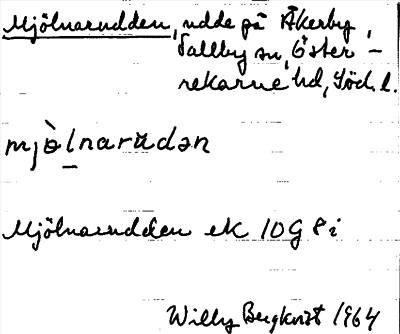 Mjölnarudden, udde på Åkerby,
Vallby sn, Öster-
rekarne hd, Söd. l.
mjò̱lnarüdən
Mjölnarudden ek 10G 8i
Willy Bergkvist 1964